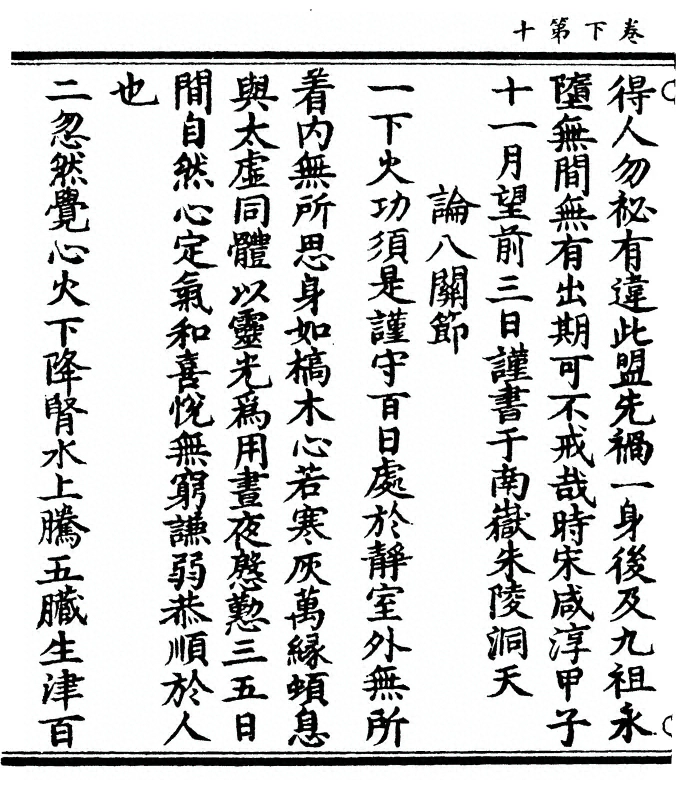 卷下第十
得人勿祕有違此盟先禍一身後及九祖永
墮無間無有出期可不戒哉時宋咸淳甲子
十一月望前三日謹書于南嶽朱陵洞天
論八關節
一下火功須是謹守百日處於靜室外無所
着内無所思身如槁木心若寒灰萬緣頓息
與太虛同體以靈光爲用晝夜慇懃三五日
間自然心定氣和喜悅無窮謙弱恭順於人
也
二忽然覺心火下降腎水上騰五臟生津百